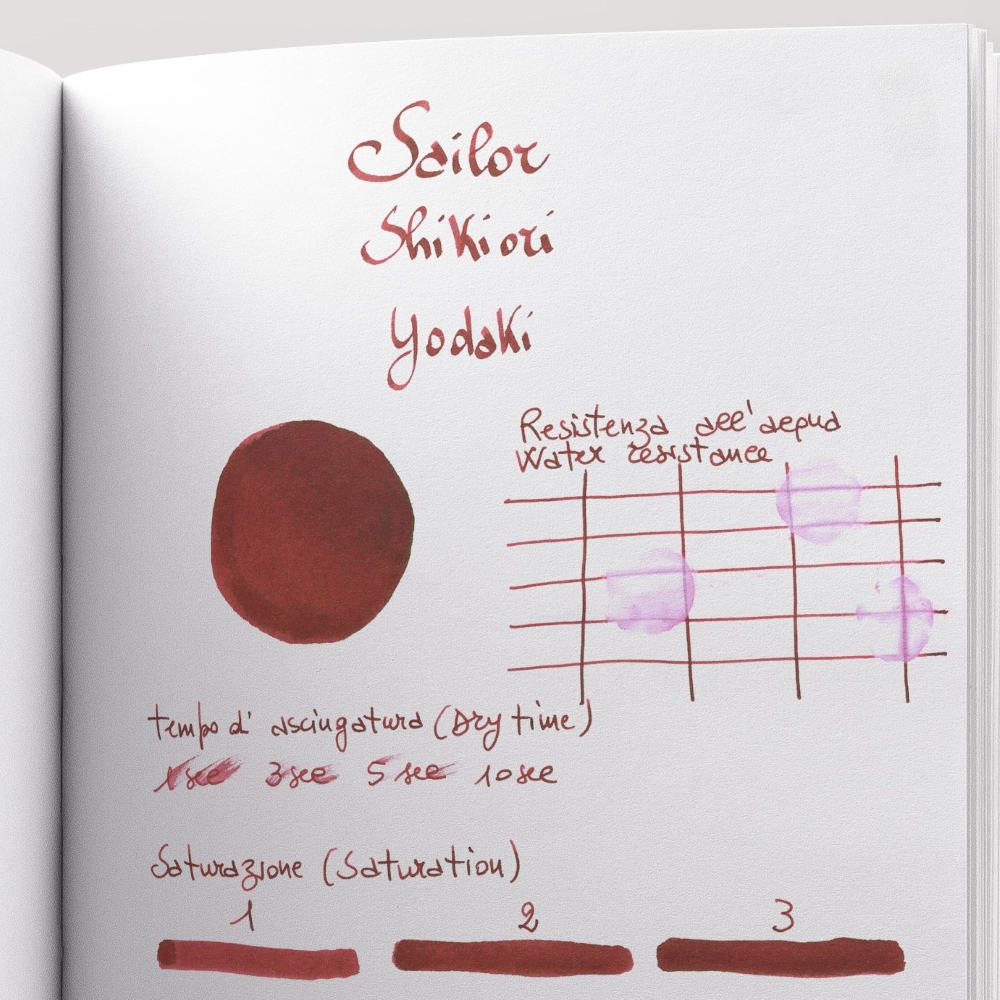 Sailor
Shikiori
Yodaki
Resistenza all'acqua
Water resistance
tempo d'asciugatura (Dry time)
1 sec 3 sec 5 sec 10 sec
Saturazione (Saturation)
1 2 3